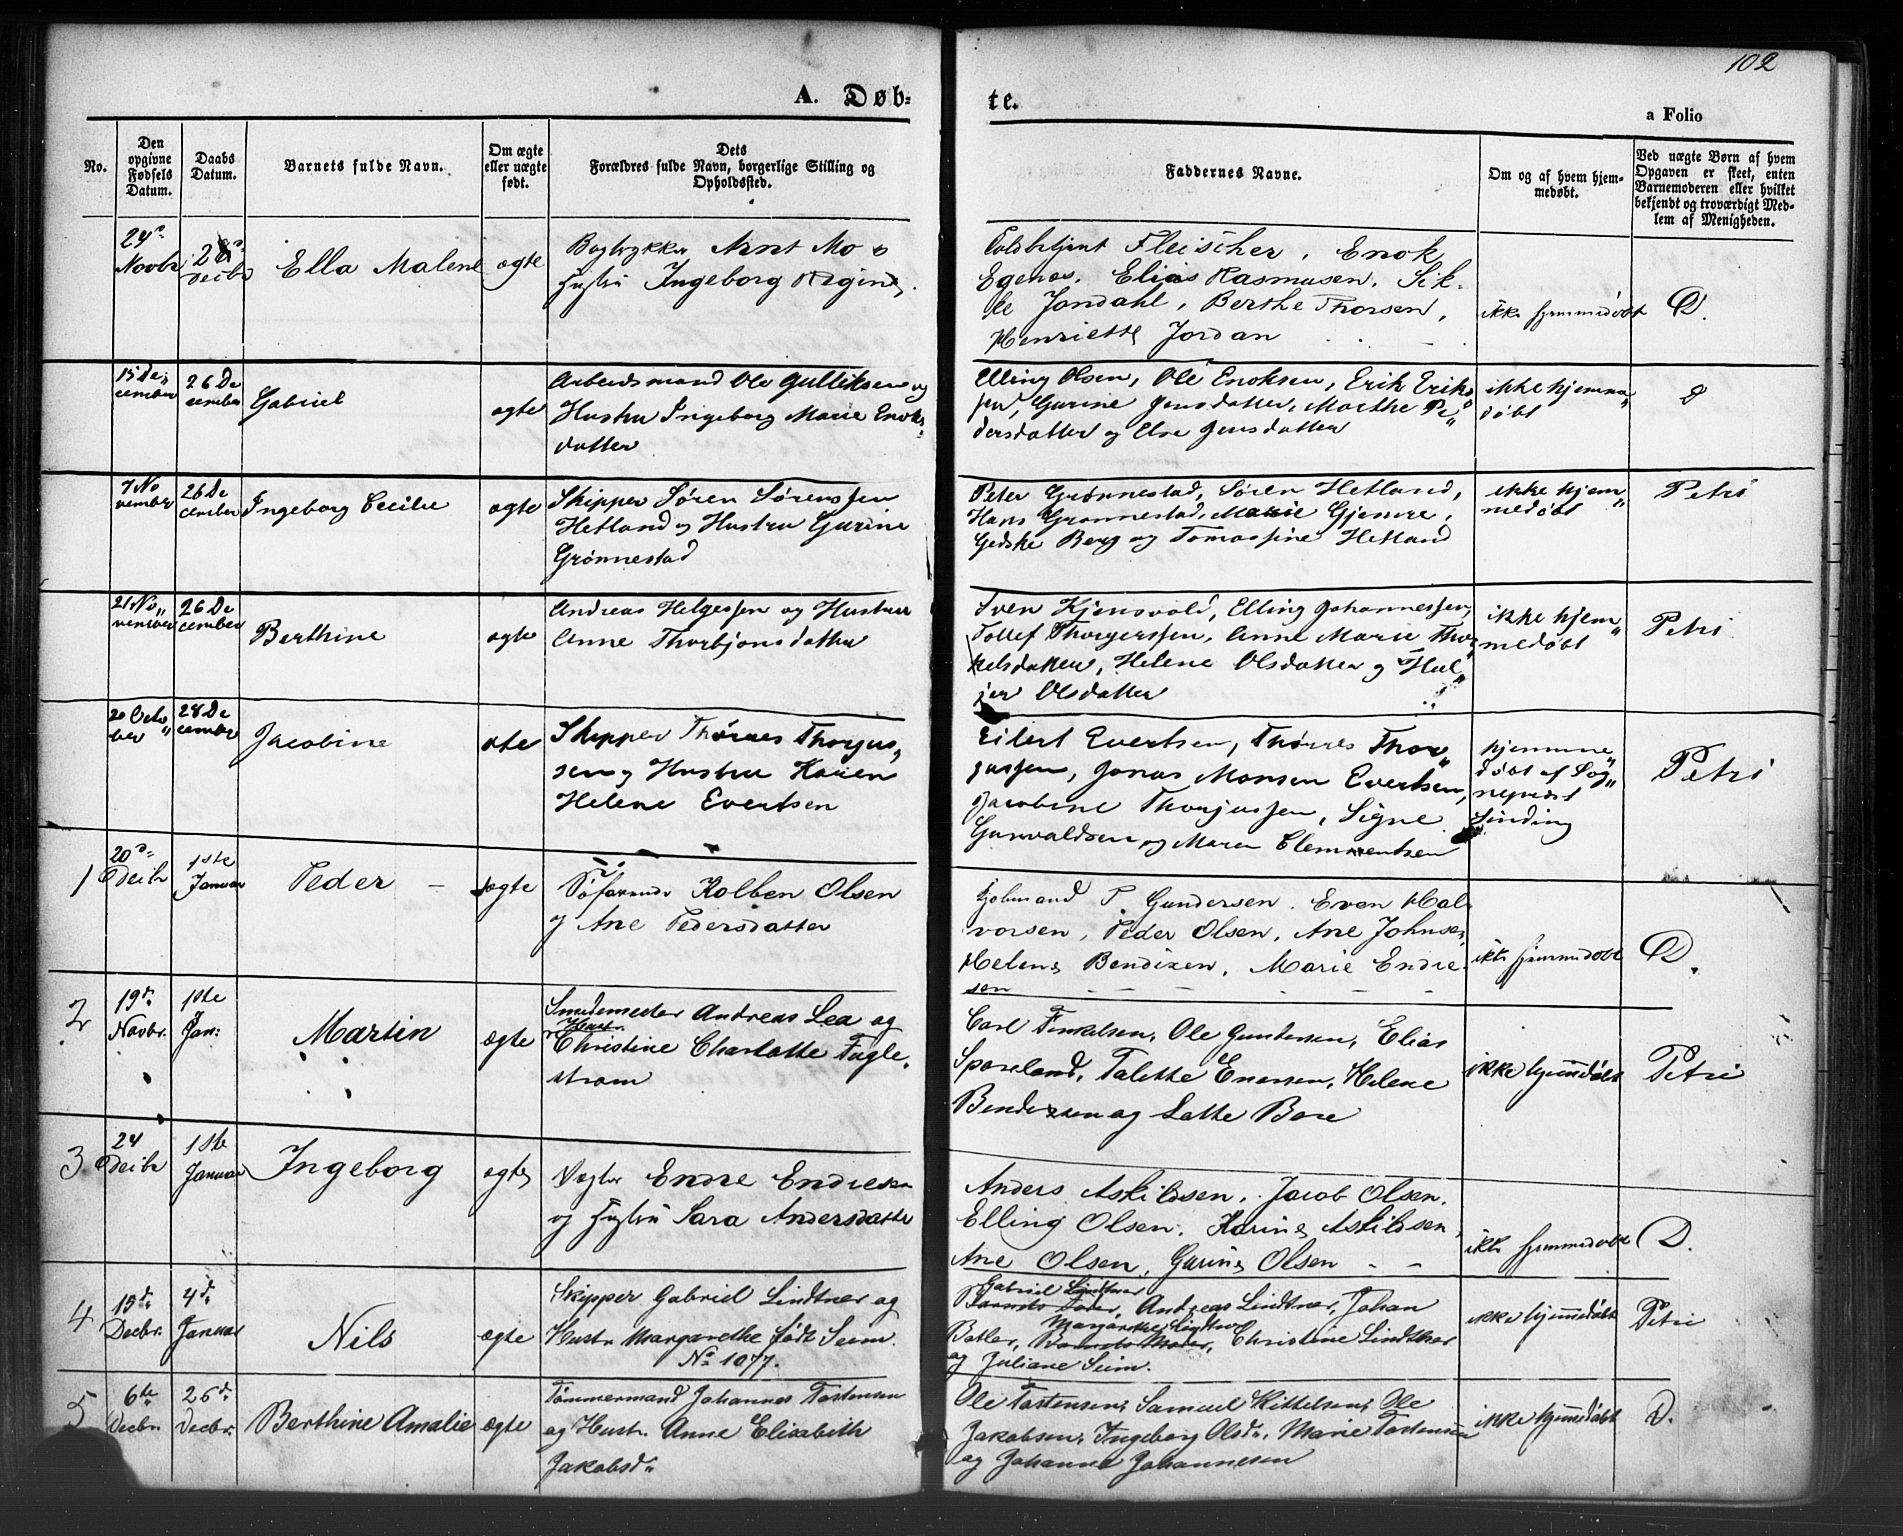 102
A. Døb-
te.
a Folio
No.
Den
opgivne
Fødsels
Datum.
Daabs
Datum.
Barnets fulde Navn.
Om ægte
eller uægte
født.
Dets
Forældres fulde Navn, borgerlige Stilling og
Opholdssted.
Faddernes Navne.
Om og af hvem hjem-
medøbt.
Ved uægte Børn af hvem
Opgaven er skeet, enten
Barnemoderen eller hvilket
bekjendt og troværdigt Med-
lem af Menigheden.
24de
Novbr
Decbr
Ella Malene
ægte
Bogtrykker Arnt Mo &
Hustru Ingeborg Regine.
Toldbetjent Fleischer, Enok
Egenæs, Elias Rasmusen, Sik-
ke Jondahl, Berthe Thorsen,
Henriette Jordan
ikke hjemmedøbt
D.
15 De„
cember
26 De
cember
Gabriel
ægte
Arbeidsmand Ole Gulliksen og
Hustru Ingeborg Marie Enoks-
datter
Elling Olsen, Ole Enoksen, Erik Erik„
sen, Gurine Jensdatter, Marthe Pe„
dersdatter og Else Jensdatter
ikke hjemme„
døbt
D
7 No
vember
26 De
cember
Ingeborg Cecilie
ægte
Skipper Søren Sørenssen
Hetland og Hustru Gurine
Grønnestad
Peter Grønnestad, Søren Hetland,
Hans Grønnestad, Marie Gjemre,
Gedske Berg og Tomassine Hetland
ikke hjem„
medøbt
Petri
21 No„
vember
26 De
cember
Berthine
ægte
Andreas Helgessen og Hustru
Anne Thorbjønsdatter
Sven Kjensvold, Elling Johannessen,
Tollef Thorgerssen, Anne Marie Thor„
kelsdatter, Helene Olsdatter og Hel„
jer Olsdatter
ikke hjem„
medøbt
Petri
20 Octo„
ber
28 De
cember
Jacobine
ægte
Skipper Thørres Thorjus„
sen og Hustru Karen
Helene Evertsen
Eilert Evertsen, Thørres Thor„
jussen, Jonas Monsen Evertsen,
Jacobine Thorjussen, Signe
Gunvaldsen og Maren Clemmentsen
hjemme„
døbt af Sog„
nepræst
Sinding
Petri
1
20de
Decbr
1ste
Januar
Peder
ægte
Søfarende Kolben Olsen
og Ane Pedersdatter
Kjøbmand T. Gundersen, Even Hal-
vorsen, Peder Olsen, Ane Johnsen,
Helene Bendixen, Marie Endre-
sen
ikke hjemmedøbt
D.
2
19de
Novbr.
1ste
Jan:
Martin
ægte
Smedemester Andreas Lea og
Hustr.
Christine Charlotte Fugle-
strøm
Carl Finkelsen, Ole Gundersen, Elias
Spareland, Talette Enersen, Helene
Bendixen og Lotte Bore
ikke hjemmedøbt
Petri
3
24
Decbr
1ste
Januar
Ingeborg
ægte
Vægter Endre Endresen
og Hustru Sara Andersdatter
Anders Askildsen, Jacob Olsen,
Elling Olsen, Karine Askildsen,
Ane Olsen, Gurine Olsen
ikke hjemmedøbt
D.
4
15de
Decbr.
4de
Januar
Nils
ægte
Skipper Gabriel Lindtner og
Hustr. Margarethe født Seim.
No 1077.
Gabriel Lindtner
Barnets Fader, Andreas Lindtner, Johan
Margarethe Lindtner
Batler, Barnets Moder, Christine Lindtner
og Juliane Seim.
ikke hjemmedøbt
Petri
5
6te
Decbr.
26de
Decbr.
Berthine Amalie
ægte
Tømmermand Johannes Tostensen
og Hustr. Anne Elisabeth
Jakobsd.
Ole Tostensen, Samuel Kittelsen, Ole
Jakobsen, Ingeborg Olsd., Marie Tostensen
og Johanne Johannesen
ikke hjemmedøbt
D.